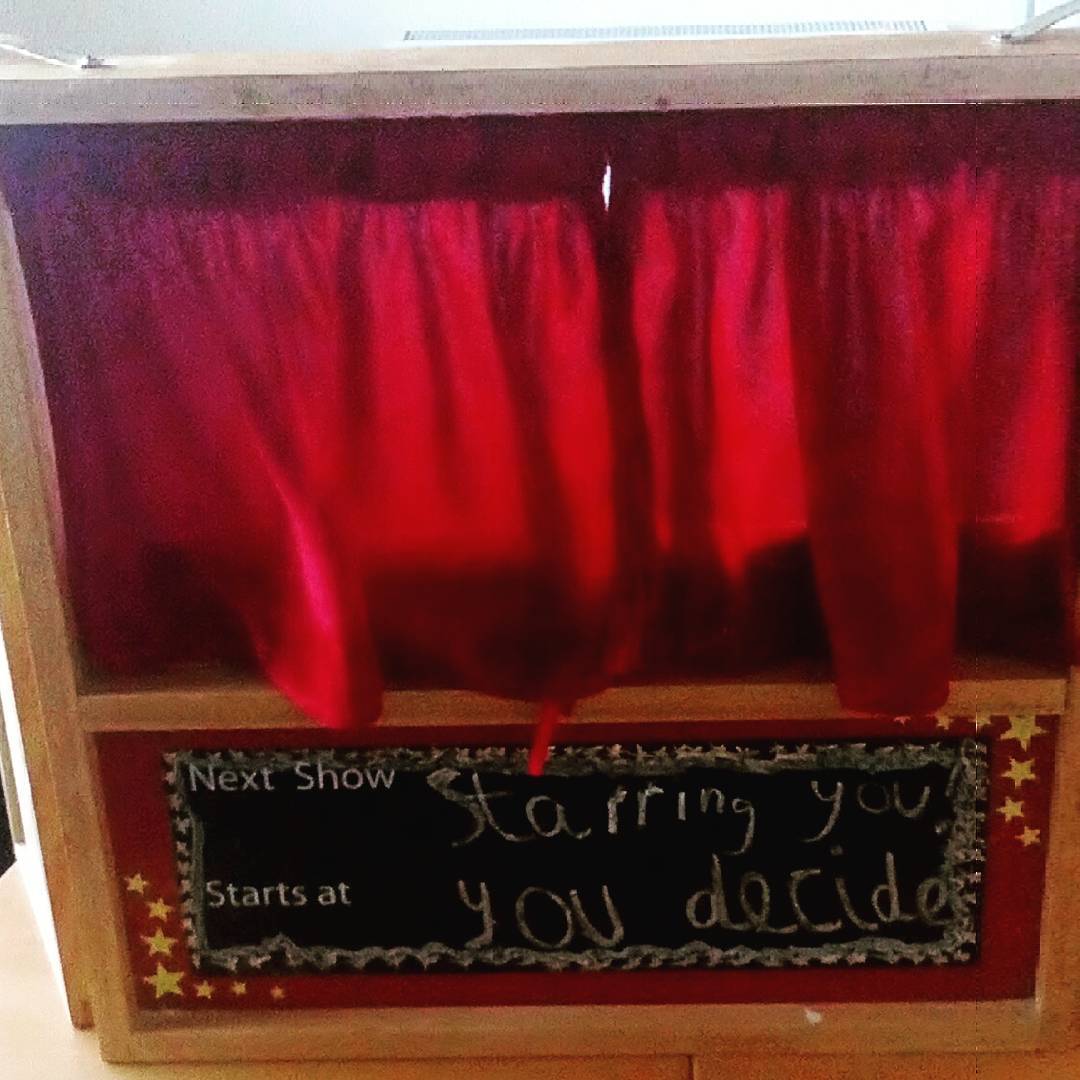 Next Show Starring you!
Starts at you decide